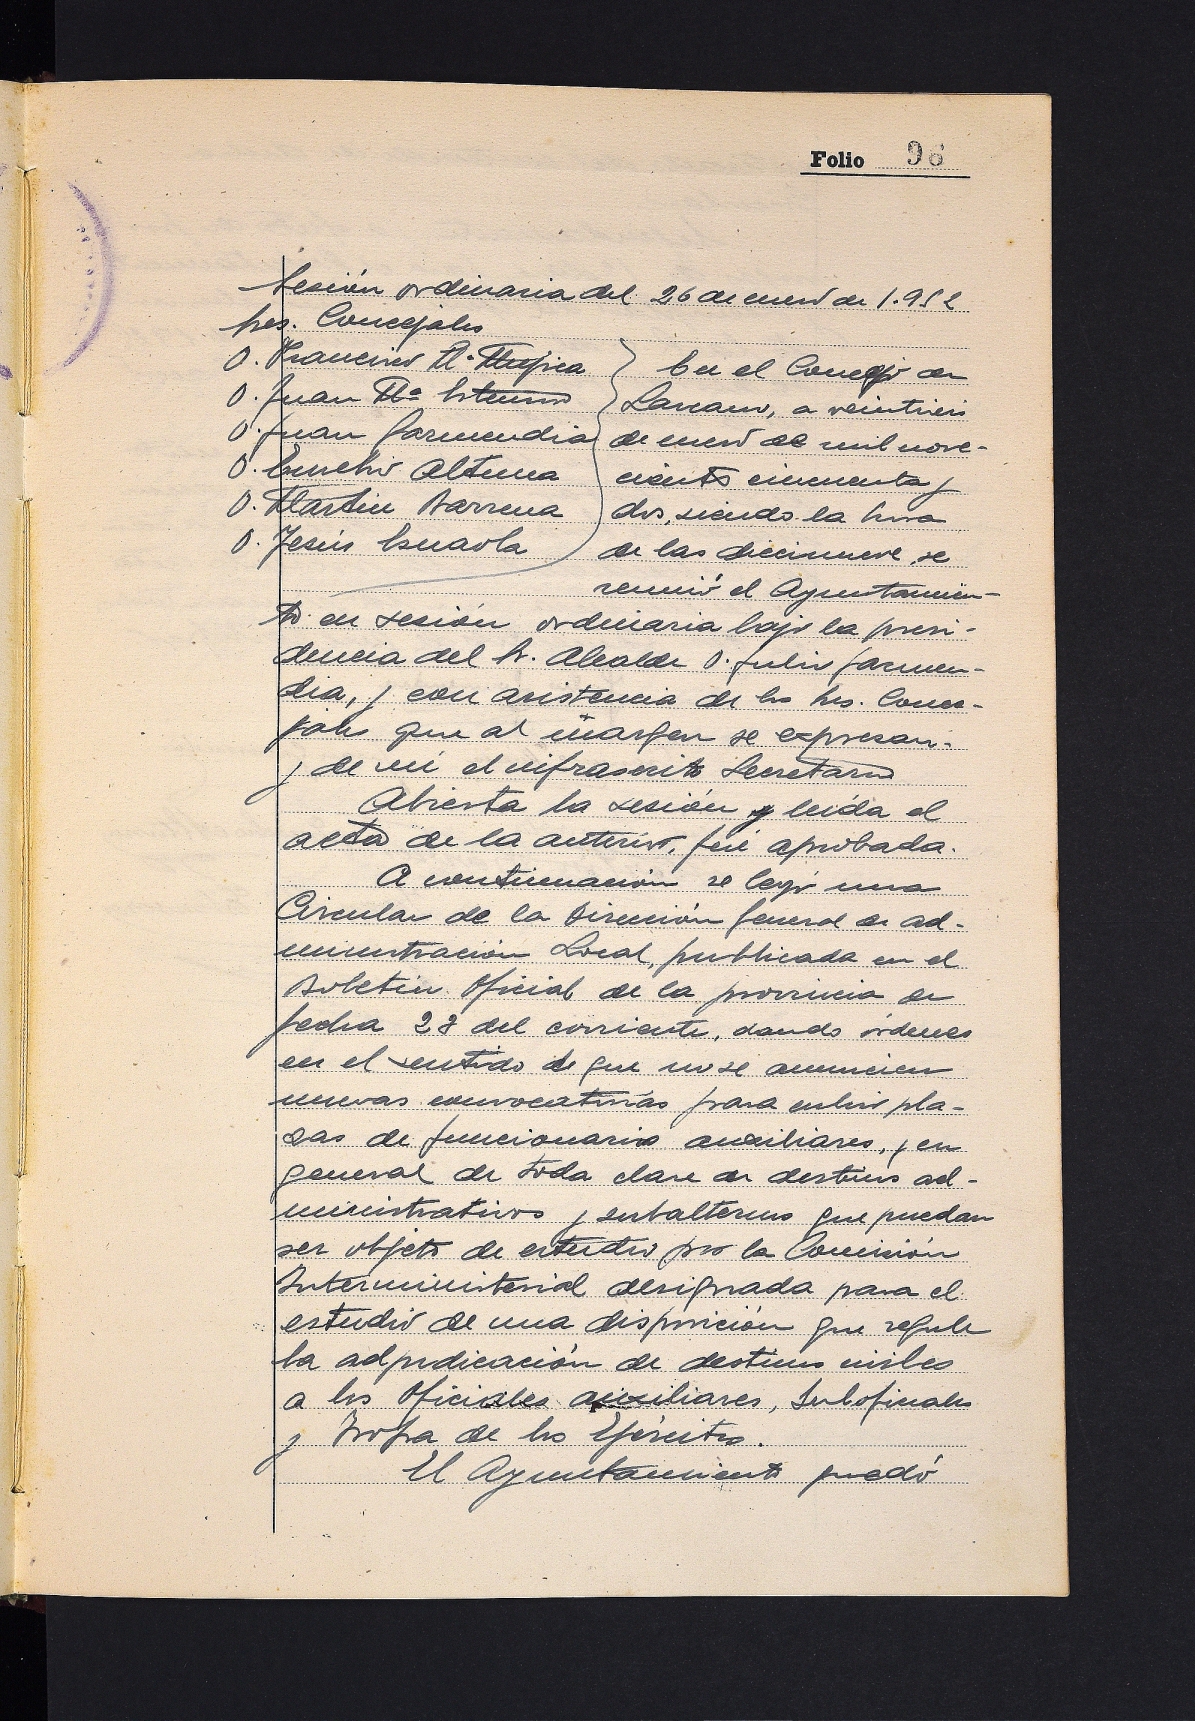 Folio 96
Sesión ordinaria del 26 de enero de 1.952
Sres. Concejales
D. Francisco M. Mujica
D. Juan Mª
D. Juan Garmendia
D. Eusebio Altuna
D. Martin Barrena
D. Jesús Esnaola
En el Concejo de
Lazcano, a veintiseis
de enero de mil nove-
cientos cincuenta y
dos, siendo la hora
de las diecinueve, se
reunió el Ayuntamien-
to en sesión ordinaria bajo la presi-
dencia del Sr. Alcalde D. Julio Garmen-
dia, y con asistencia de los Sres. Conce-
jales que al margen se expresan.
y de mi el infrascrito Secretario
Abierta la sesión y leida el
acta de la anterior, fué aprobada.
A continuación se leyó una
Circular de la Dirección General de ad-
ministración Local, publicada en el
Boletin Oficial de la provincia de
fecha 23 del corriente, dando órdenes
en el sentido de que no se anuncien
nuevas convocatorias para cubrir pla-
zas de funcionarios auxiliares, y en
general de toda clase de destinos ad-
ministrativos y subalternos que puedan
ser objeto de estudio por la Comisión
Interministerial designada para el
estudio de una disposición que regule
la adjudicación de destinos civiles
a los Oficiales auxiliares, Suboficiales
y Tropa de los Ejércitos.
El Ayuntamiento quedó